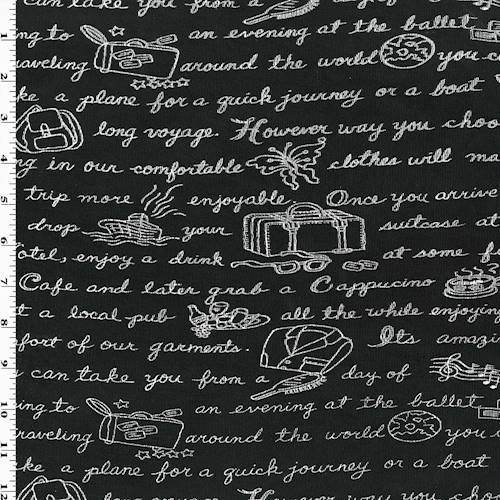 can take you from a day of
1 ing to an evening at the ballet
raveling around the world you c
2 ke a plane for a quick journey or a boat
3 long voyage. However way you choo
4 ng in our comfortable clothes will ma
5 trip more enjoyable. Once you arrive
6 drop your suitcase at
otel, enjoy a drink at some f
7 Cafe and later grab a Cappucino
8 t a local pub all the while enjoying
fort of our garments. Its amazi
9 can take you from a day of
10 ing to an evening at the ballet
11 raveling around the world you c
ke a plane for a quick journey or a boat
12 long voyage. However way you choo